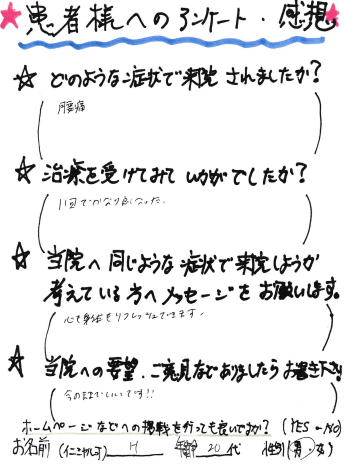 ★患者様へのアンケート・感想★
☆ どのような症状で来院されましたか?
腰痛
☆ 治療を受けてみていかがでしたか?
1回でかなり良くなった.
☆ 当院へ同じような症状で来院しようか
考えている方へメッセージをお願いします。
心も身体もリフレッシュできます.
★ 当院への要望.ご意見などありましたらお書き下さい
今のままでいいです!!
ホームページなどへの掲載を行っても良いですか? (YES・NO)
お名前(イニシャル可) H 年齢 20 代 性別(男・女)